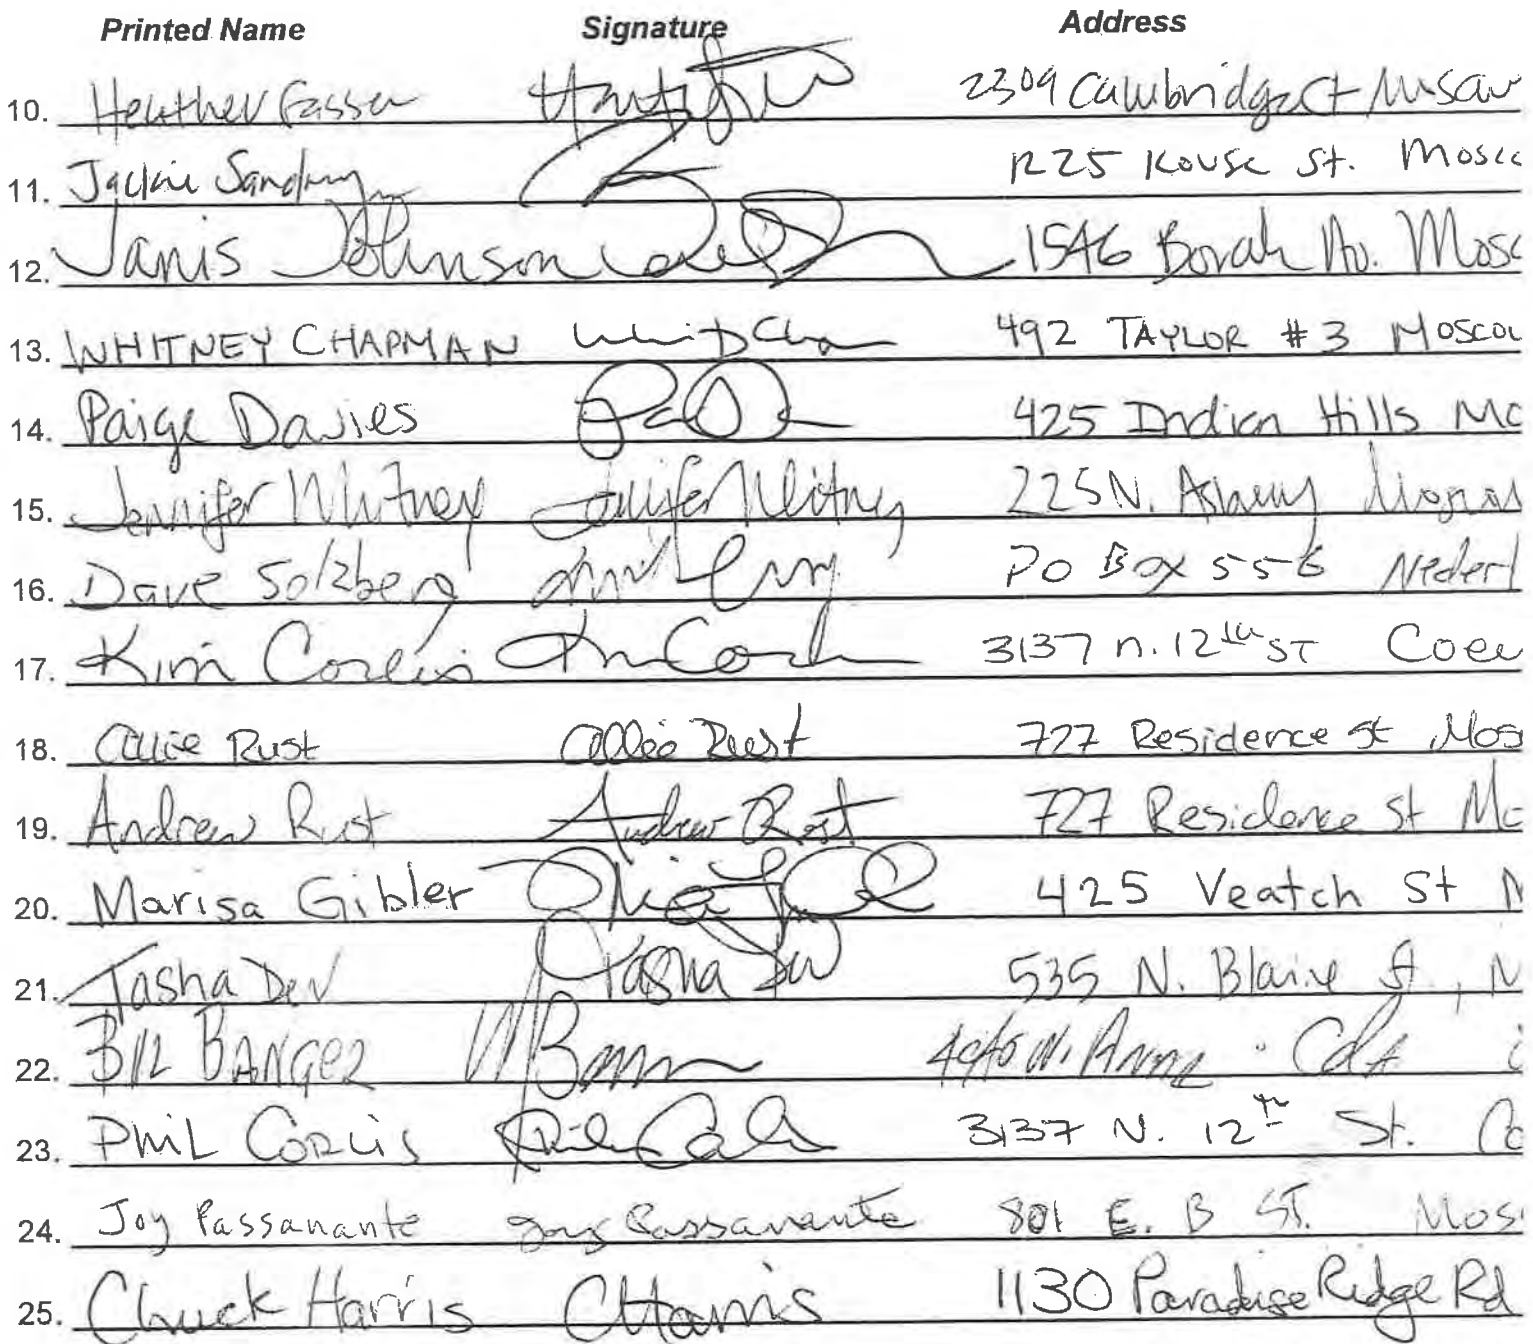 Printed Name Signature Address
10. Heather Gasser 2309 Cambridge Ct
11. Jackie 1225 Kouse St. Mosco
12. Janis Johnson 1546 Borah Av. Mosc
13. WHITNEY CHAPMAN Whit Cha 492 TAYLOR #3 MOSCOW
14. Paige Davies 425 Indian Hills Mo
15. Jennifer Whitney Jennifer Whitney 225 N. Asbury
16. Dave Solzberg PO Box 556 Nederl
17. Kim Corlis 3137 N. 12th ST Coeu
18. Callie Rust Callie Rust 727 Residence St Mos
19. Andrew Rust Andrew Rust 727 Residence St Mo
20. Marisa Gibler 425 Veatch St M
21. Tasha Dev Tasha Dev 535 N. Blaine St, M
22. N. CdA
23. PHIL CORLIS 3137 N. 12th St. Co
24. Joy Passanante Joy Passanante 801 E. B ST. Mos
25. Chuck Harris CHarris 1130 Paradise Ridge Rd